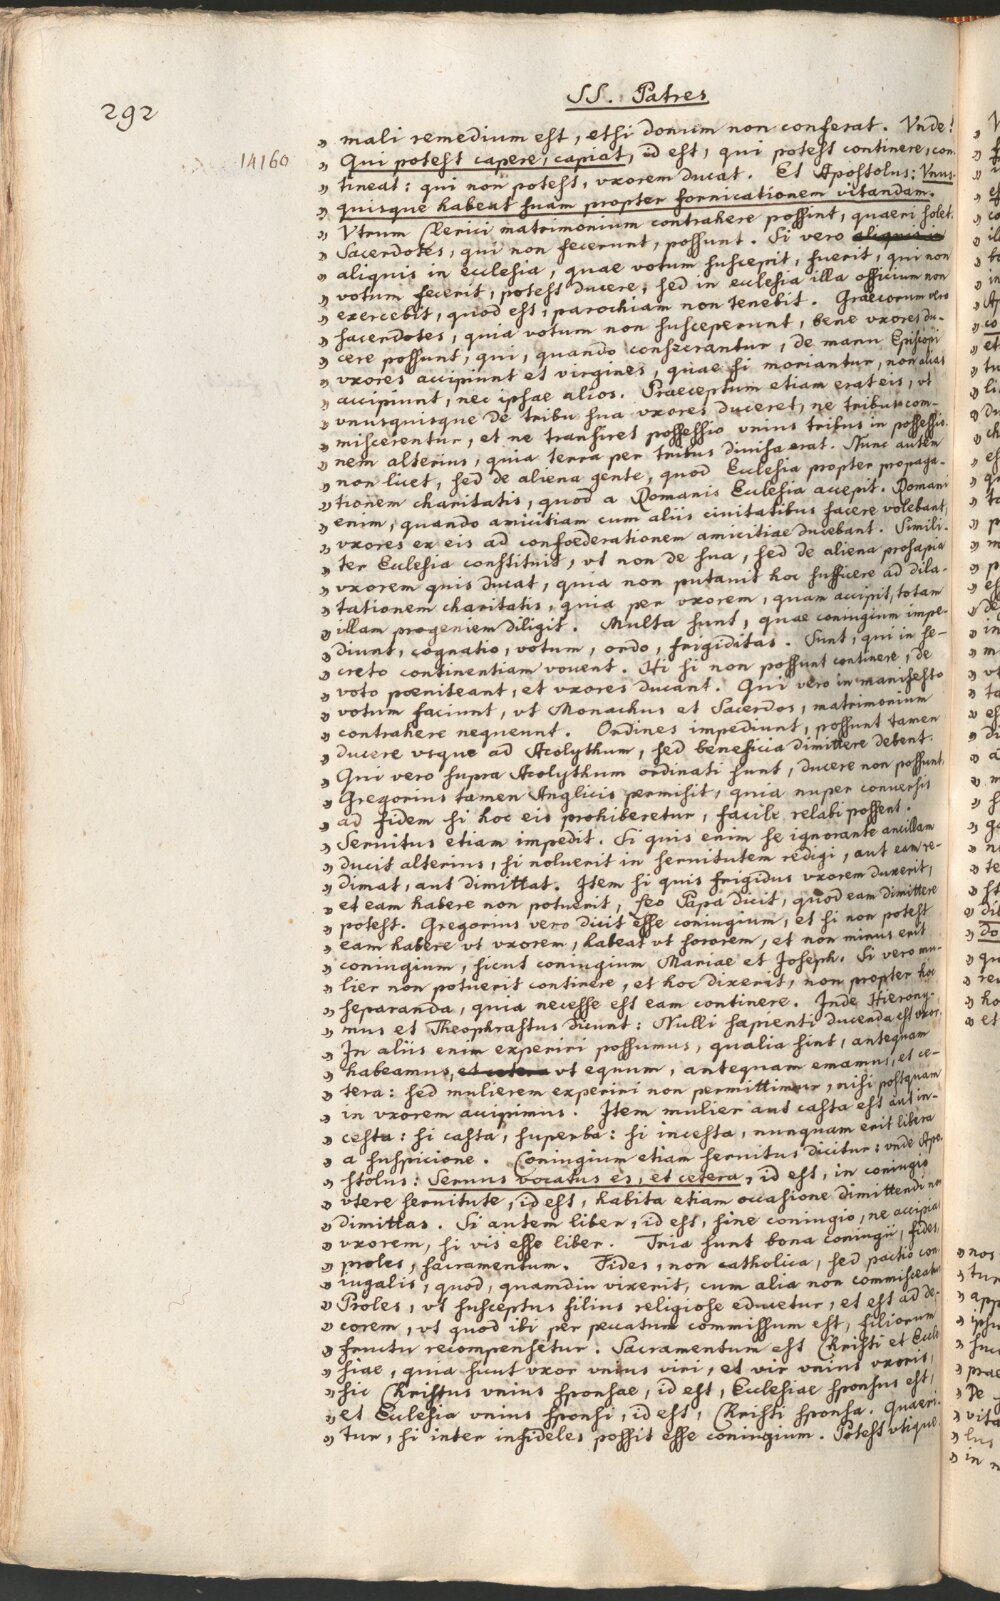 292
SS. Patres
14160
„ mali remedium est, etsi donum non conferat. Vnde:
„ Qui potest capere, capiat, id est, qui potest continere, con-
„ tineat: qui non potest, vxorem ducat. Et Apostolus: Vnus-
„ quisque habeat suam propter fornicationem vitandam.
„ Vtrum Clerici matrimonium contrahere possint, quaeri solet.
„ Sacerdotes, qui non fecerunt, possunt. Si vero aliquis in
„ aliquis in ecclesia, quae votum suscepit, fuerit, qui non
„ votum fecerit, potest ducere; sed in ecclesia illa officium non
„ exercebit, quod est, parochiam non tenebit. Graecorum vero
„ sacerdotes, quia votum non susceperunt, bene vxores du-
„ cere possunt, qui, quando consecrantur, de manu Episcopi
„ vxores accipiunt et virgines, quae si moriantur, non alias
„ accipiunt, nec ipsae alios. Praeceptum etiam erat eis, vt
„ vnusquisque de tribu sua vxores duceret, ne tribus com-
„ miscerentur, et ne transiret possessio vnius tribus in possessio-
„ nem alterius, quia terra per tribus diuisa erat. Nunc autem
„ non licet, sed de aliena gente, quod Ecclesia propter propaga-
„ tionem charitatis, quod a Romanis Ecclesia accepit. Romani
„ enim, quando amicitiam cum aliis ciuitatibus facere volebant,
„ vxores ex eis ad confoederationem amicitiae ducebant. Simili-
„ ter Ecclesia constituit, vt non de sua, sed de aliena prosapia
„ vxorem quis ducat, quia non putauit hoc sufficere ad dila-
„ tationem charitatis, quia per vxorem, quam accipit, totam
„ illam progeniem diligit. Multa sunt, quae coniugium impe-
„ diunt, cognatio, votum, ordo, frigiditas. Sunt, qui in se-
„ creto continentiam vouent. Hi si non possunt continere, de
„ voto poeniteant, et vxores ducant. Qui vero in manifesto
„ votum faciunt, vt Monachus et Sacerdos, matrimonium
„ contrahere nequeunt. Ordines impediunt, possunt tamen
„ ducere vsque ad Acolythum, sed beneficia dimittere debent.
„ Qui vero supra Acolythum ordinati sunt, ducere non possunt.
„ Gregorius tamen Anglicis permisit, quia nuper conuersis
„ ad fidem si hoc eis prohiberetur, facile relabi possent.
„ Seruitus etiam impedit. Si quis enim se ignorante ancillam
„ ducit alterius, si noluerit in seruitutem redigi, aut eam re-
„ dimat, aut dimittat. Item si quis frigidus vxorem duxerit,
„ et eam habere non potuerit, Leo Papa dicit, quod eam dimittere
„ potest. Gregorius vero dicit esse coniugium, et si non potest
„ eam habere vt vxorem, habeat vt sororem, et non minus erit
„ coniugium, sicut coniugium Mariae et Joseph. Si vero mu-
„ lier non potuerit continere, et hoc dixerit, non propter hoc
„ separanda, quia necesse est eam continere. Inde Hierony-
„ mus et Theophrastus dicunt: Nulli sapienti ducenda est vxor.
„ In aliis enim experiri possumus, qualia sint, antequam
„ habeamus, et cetera vt equum, antequam emamus, et ce-
„ tera: sed mulierem experiri non permittimur, nisi postquam
„ in vxorem accipimus. Item mulier aut casta est aut in-
„ cesta: si casta, superba: si incesta, nunquam erit libera
„ a suspicione. Coniugium etiam seruitus dicitur: vnde Apo-
„ stolus: Seruus vocatus es, et cetera, id est, in coniugio
„ vtere seruitute, id est, habita etiam occasione dimittendi non
„ dimittas. Si autem liber, id est, sine coniugio, ne accipias
„ vxorem, si vis esse liber. Tria sunt bona coniugii, fides,
„ proles, sacramentum. Fides, non catholica, sed pactio con-
„ iugalis, quod, quamdiu vixerit, cum alia non commisceatur.
„ Proles, vt susceptus filius religiose educetur, et est ad de-
„ corem, vt quod ibi per peccatum commissum est, filiorum
„ fructu recompensetur. Sacramentum est Christi et Eccle-
„ siae, quia sicut vxor vnius viri, et vir vnius vxoris,
„ sic Christus vnius sponsae, id est, Ecclesiae sponsus est,
„ et Ecclesia vnius sponsi, id est, Christi sponsa. Quaeri-
„ tur, si inter infideles possit esse coniugium. Potest vtique